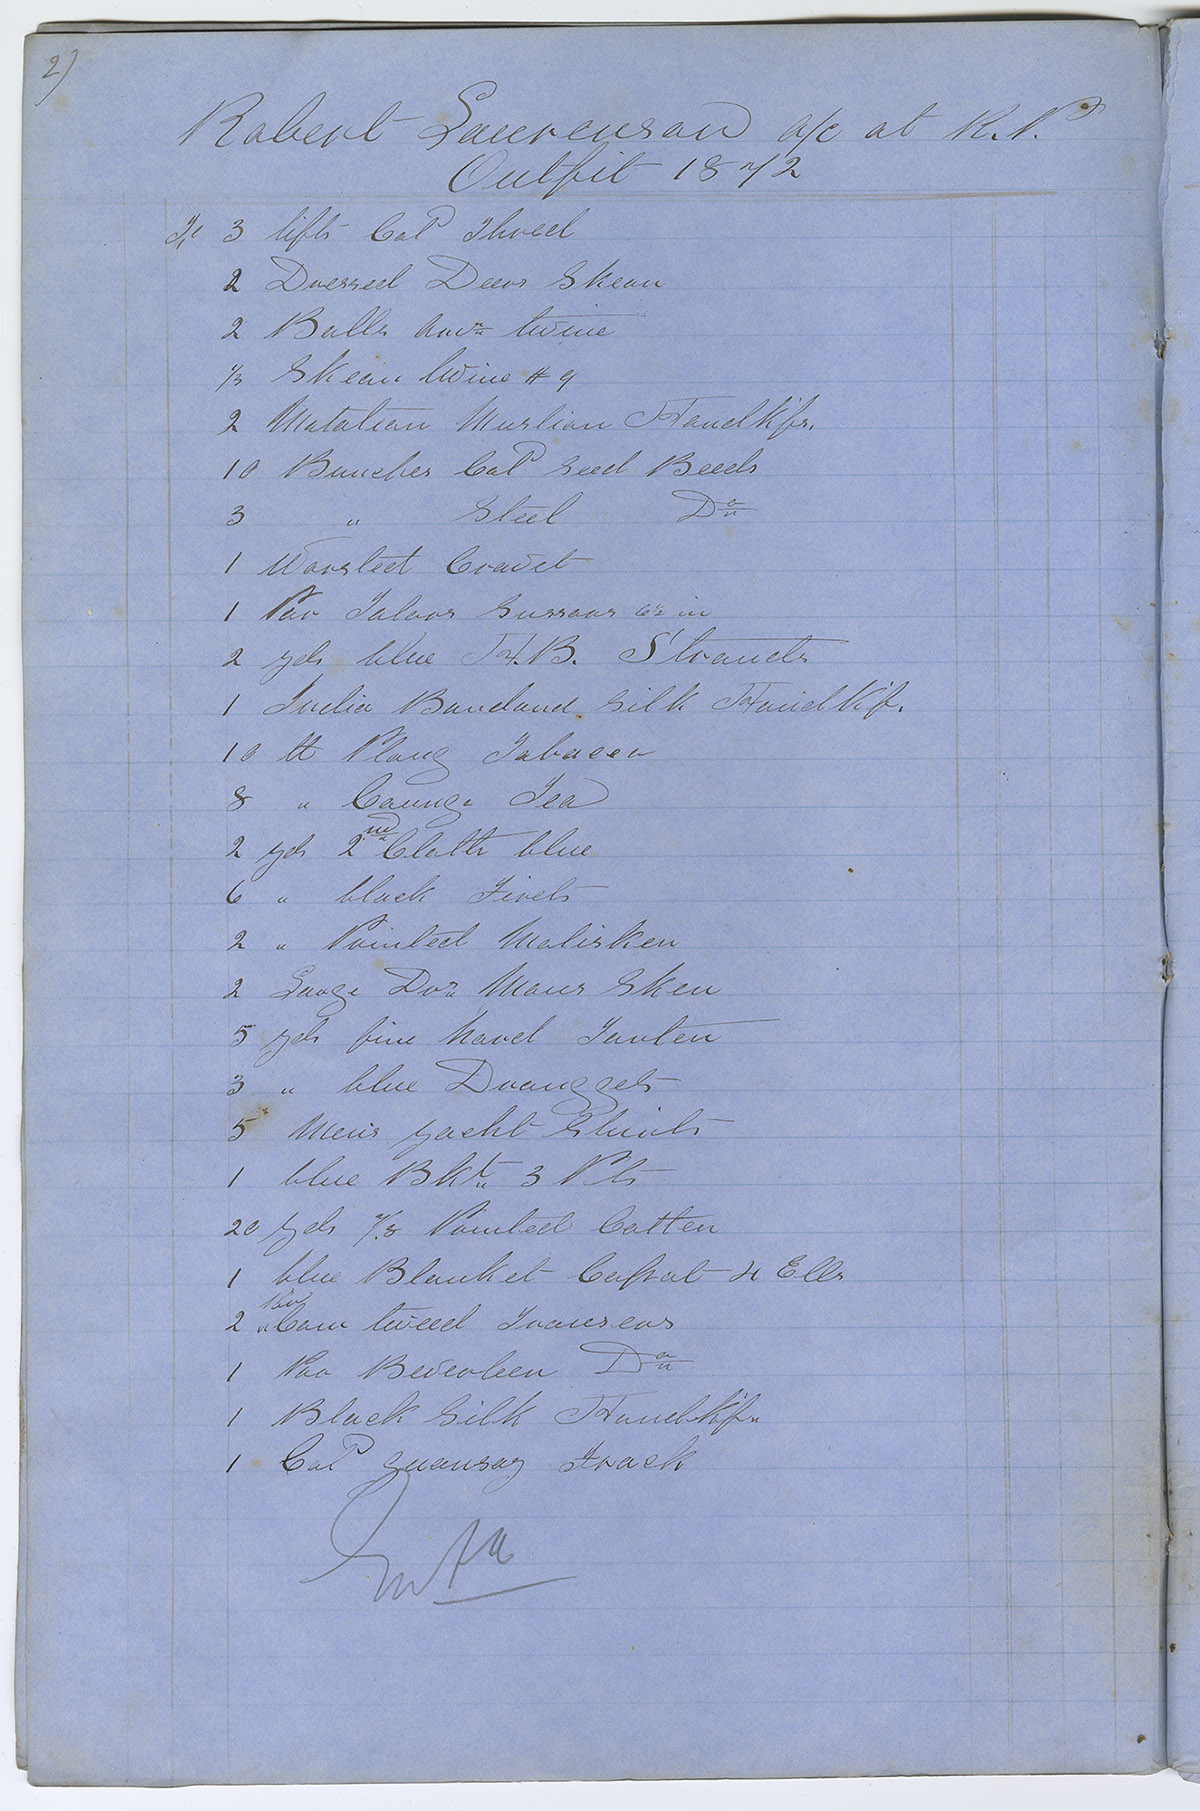 2)
Robert Laurenson a/c at R. P.
Outfit 1872
To 3 lifts Col'd Threed
2 Dressed Deer Skean
2 Balls twine
1/3 Skean twine # 9
2 Matatian Muslian Handkfs.
10 Bunches Col'd Seed Beeds
3 " Steel Do
1 Worsted Cravet
1 Par Talors Sussors 6½ in
2 yds blue H.B. Strouds
1 India Bandana Silk Handkf.
10 lb Ploug Tobacco
8 " Coungo Tea
2 yds 2nd Cloth blue
6 " black
2 " Printed Molisken
2 Large Drs Mous Sken
5 yds fine Tarten
3 " blue Druggets
5 Mens yacht Shirts
1 blue Bkt 3 Pts
20 yds 7/8 Printed Cotten
1 blue Blanket Capot 4 Ells
2 Par Com tweed Trousers
1 Par Beverteen Do
1 Black Silk Handkf.
1 Col'd guansay Frock